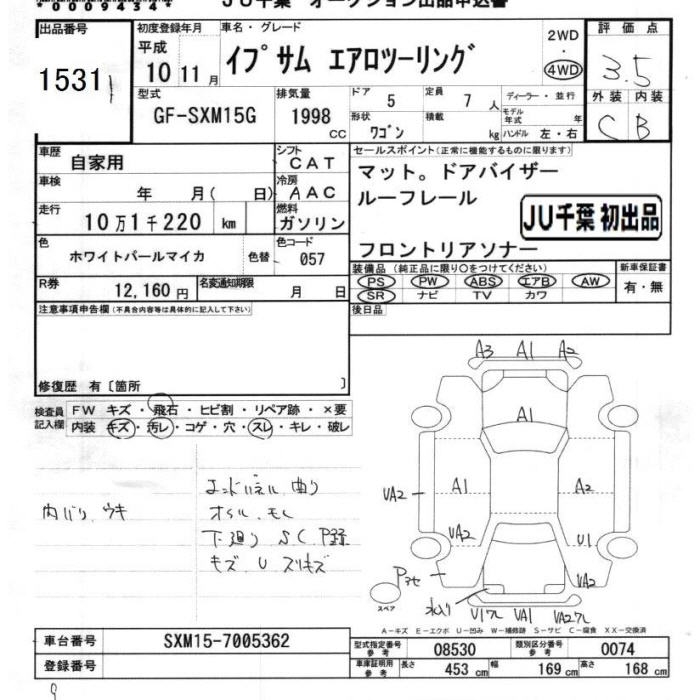 00009434
JU千葉 オークション出品申込書
出品番号
1531
初度登録年月
平成
10 11 月
車名・グレード
イプサム エアロツーリング
2WD
・
4WD
評価点
3.5
外装 内装
C B
型式
GF-SXM15G
排気量
1998
CC
ドア
5
定員
7 人
ディーラー・並行
形状
ワゴン
積載
kg
モデル年式 年
ハンドル 左・右
車歴
自家用
シフト
CAT
車検
年 月( 日)
冷房
AAC
走行
10万1千220 km
燃料
ガソリン
色
ホワイトパールマイカ
色替
色コード
057
R券
12,160 円
名変通知期限
月 日
セールスポイント(正常に機能するものに限ります)
マット。ドアバイザー
ルーフレール
JU千葉 初出品
フロントリアソナー
装備品(純正品に限り○をつけてください)
PS PW ABS エアB AW
SR ナビ TV カワ
新車保証書
有・無
後日品
注意事項申告欄(不具合内容等は具体的に記入して下さい)
修復歴 有〔箇所 〕
検査員記入欄
FW キズ・飛石・ヒビ割・リペア跡・×要
内装 キズ・汚レ・コゲ・穴・スレ・キレ・破レ
内バリ ウキ
曲り
オイル モレ
下廻り SC
キズ U スリキズ
A3 A1 A2
A1
A1
A2
VA2
VA2
U1
VA2
水入り
VA1
スペア
A-キズ E-エクボ U-凹み W-補修跡 S-サビ C-腐食 XX-交換済
車台番号
SXM15-7005362
登録番号
型式指定番号
参考
08530
類別区分番号
参考
0074
車庫証明用
参考
長さ 453 cm 幅 169 cm 高さ 168 cm